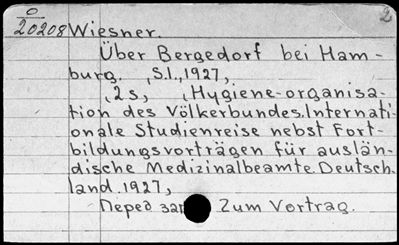 0
2
20208 Wiesner.
Über Bergedorf bei Ham-
burg. ,S.l.,1927,
,2s, ,Hygiene-organisa-
tion des Völkerbundes.Internati-
onale Studienreise nebst Fort-
bildungsvorträgen für auslän-
dische Medizinalbeamte.Deutsch-
land.1927,
Перед Zum Vortrag.